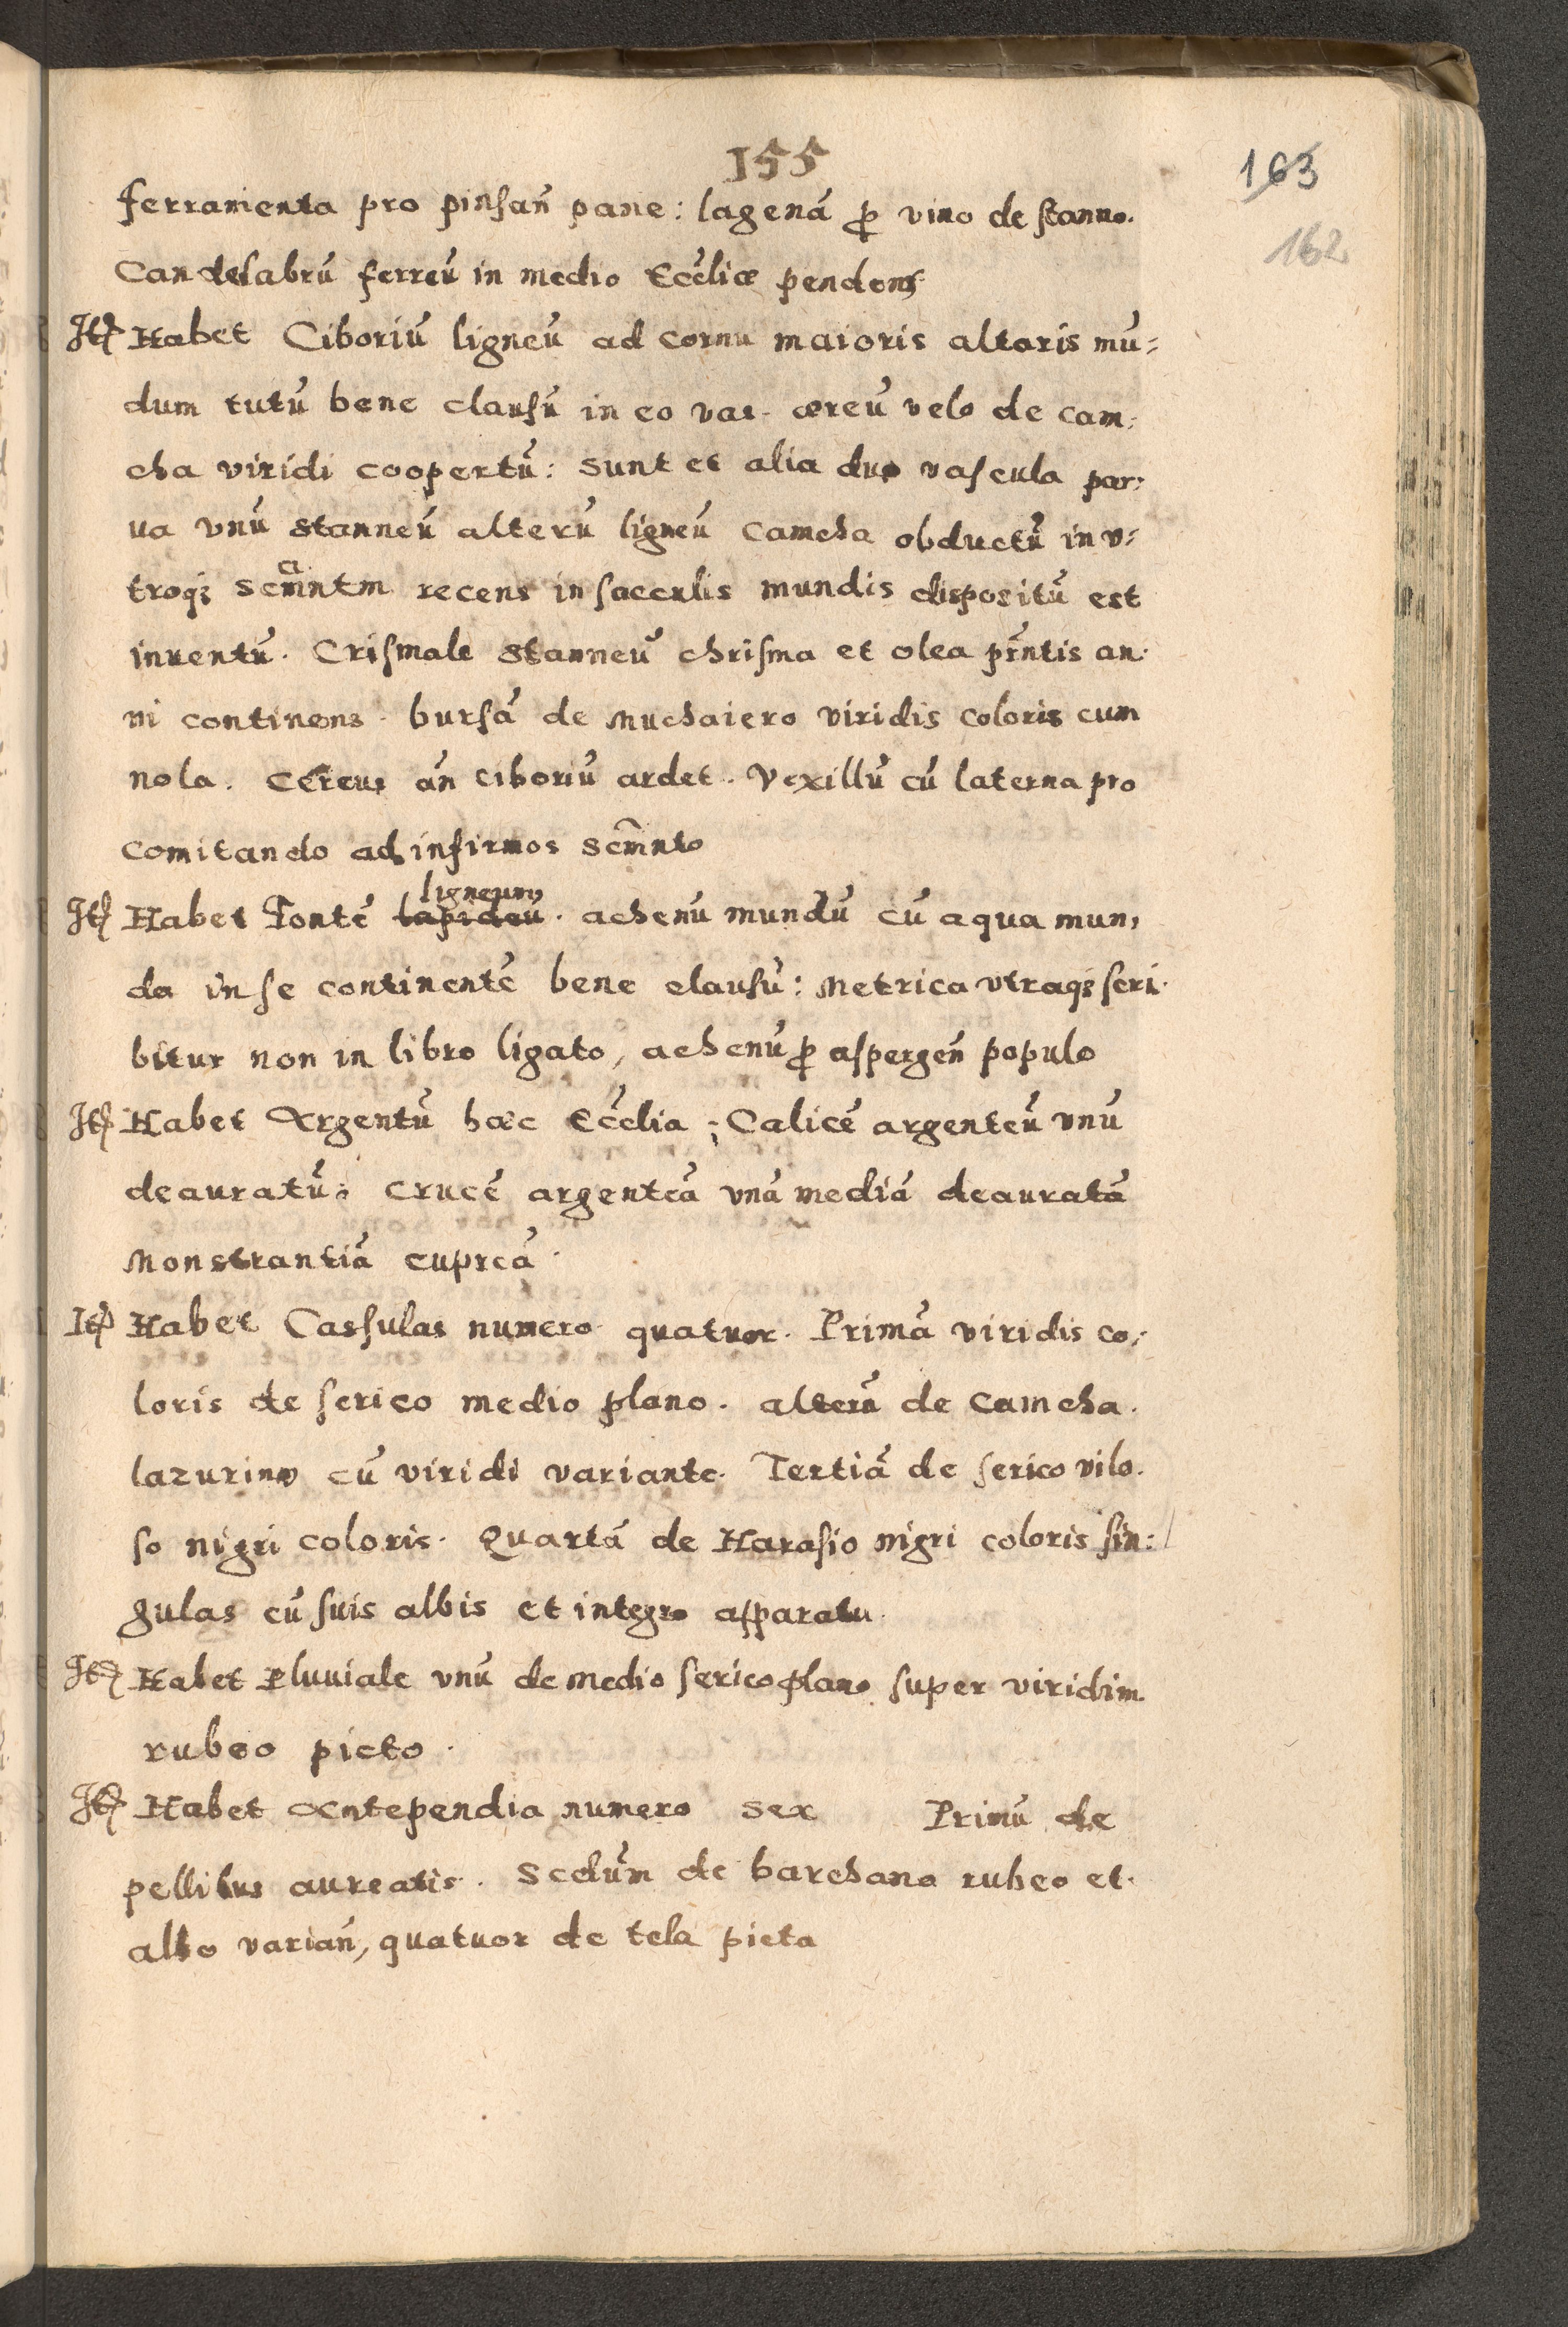 155
163
162
ferramenta pro pinsan̄ pane: lagenā ꝓ vino de stanno.
Candelabrū ferreū in medio Ecc̄liæ pendens
Itē Habet Ciboriū ligneū ad cornu maioris altaris mu=
dum tutū bene clausū in eo vas æreū velo de cam=
cha viridi coopertū: sunt et alia duo vascula par=
ua vnū stanneū alterū ligneū camcha obductū in v=
troq; sacm̄ntm recens in sacculis mundis dispositū est
inuentū. Crismale stanneū chrisma et olea prn̄tis an=
ni continens. bursā de Muchaiero viridis coloris cum
nola. Cereus an̄ ciboriū ardet. Vexillū cū laterna pro
comitando ad infirmos scm̄nto
Itē Habet Fontē lapideū ligneum. achenū mundū cū aqua mun=
da in se continentē bene clausū: Metrica vtraq; scri=
bitur non in libro ligato, achenū ꝓ aspergen̄ populo
Itē Habet Argentū hæc Ecc̄lia; Calicē argenteū vnū
deauratū: crucē argenteā vnā mediā deauratā
Monstrantiā cupreā.
Itē Habet Cassulas numero quatuor. Primā viridis co=
loris de serico medio plano. alterā de camcha
lazurino cū viridi variante. Tertiā de serico vilo=
so nigri coloris. Quartā de Harasio nigri coloris sin=
gulas cū suis albis et integro apparatu.
Itē Habet Pluuiale vnū de medio serico plano super viridim
rubeo picto.
Itē Habet Antependia numero sex Primū de
pellibus aureatis. Secdūm de barchano rubeo et
albo varian̄, quatuor de tela picta